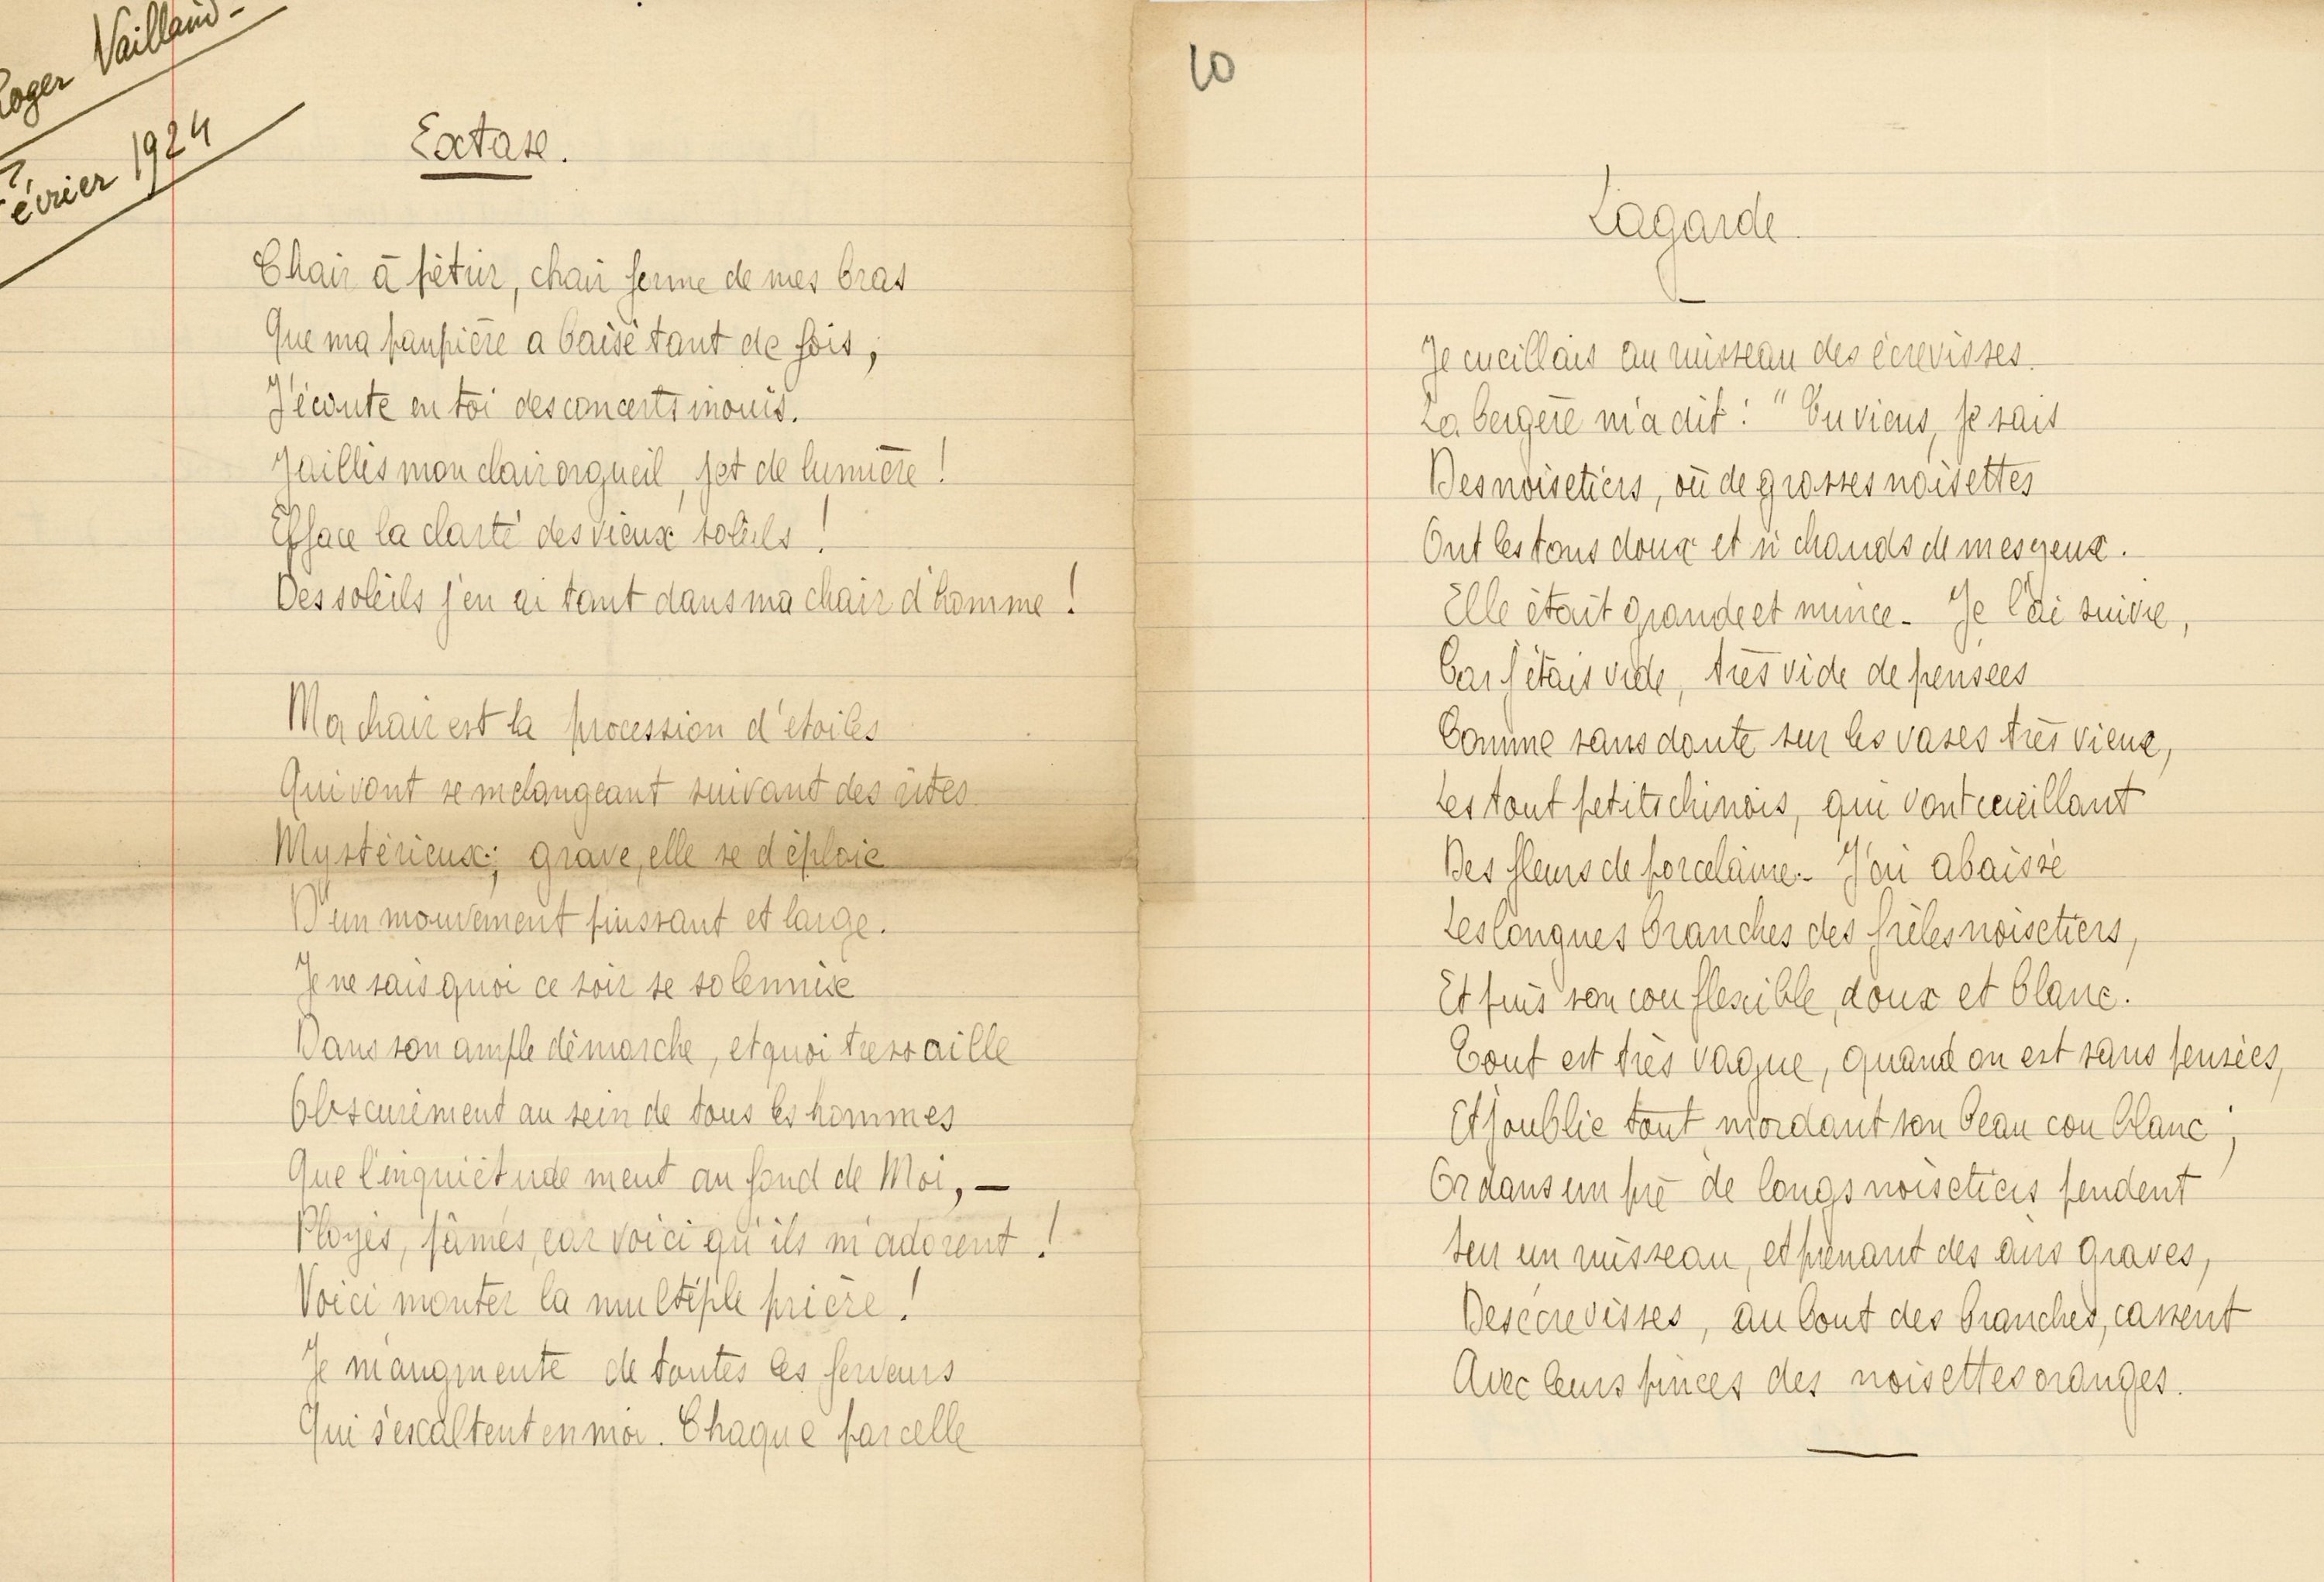 Roger Vailland -
Février 1924
Extase.
Chair à pétrir, chair ferme de mes bras
Que ma paupière a baisé tant de fois,
J'écoute en toi des concerts inouïs.
Jaillis mon clair orgueil, jet de lumière !
Efface la clarté des vieux soleils !
Des soleils j'en ai tant dans ma chair d'homme !
Ma chair est la procession d'étoiles
Qui vont se mélangeant suivant des rites
Mystérieux ; grave, elle se déploie
D'un mouvement puissant et large.
Je ne sais quoi ce soir se solennise
Dans son ample démarche, et quoi tressaille
Obscurément au sein de tous les hommes
Que l'inquiétude ment au fond de Moi, —
Ployés, pâmés, car voici qu'ils m'adorent !
Voici monter la multiple prière !
Je m'augmente de toutes les ferveurs
Qui s'exaltent en moi. Chaque parcelle
10
Lagarde.
Je cueillais au ruisseau des écrevisses.
La bergère m'a dit : " Tu viens, je sais
Des noisetiers, où de grosses noisettes
Ont les tons doux et si chauds de mes yeux.
Elle était grande et mince - Je l'ai suivie,
Car j'étais vide, très vide de pensées
Comme sans doute sur les vases très vieux,
Les tout petits chinois, qui vont cueillant
Des fleurs de porcelaine - J'ai abaissé
Les longues branches des frêles noisetiers,
Et puis son cou flexible, doux et blanc.
Tout est très vague, quand on est sans pensées,
Et j'oublie tout mordant son beau cou blanc ;
Or dans un pré de longs noisetiers pendent
Sur un ruisseau, et prenant des airs graves,
Des écrevisses, au bout des branches, cassent
Avec leurs pinces des noisettes oranges.